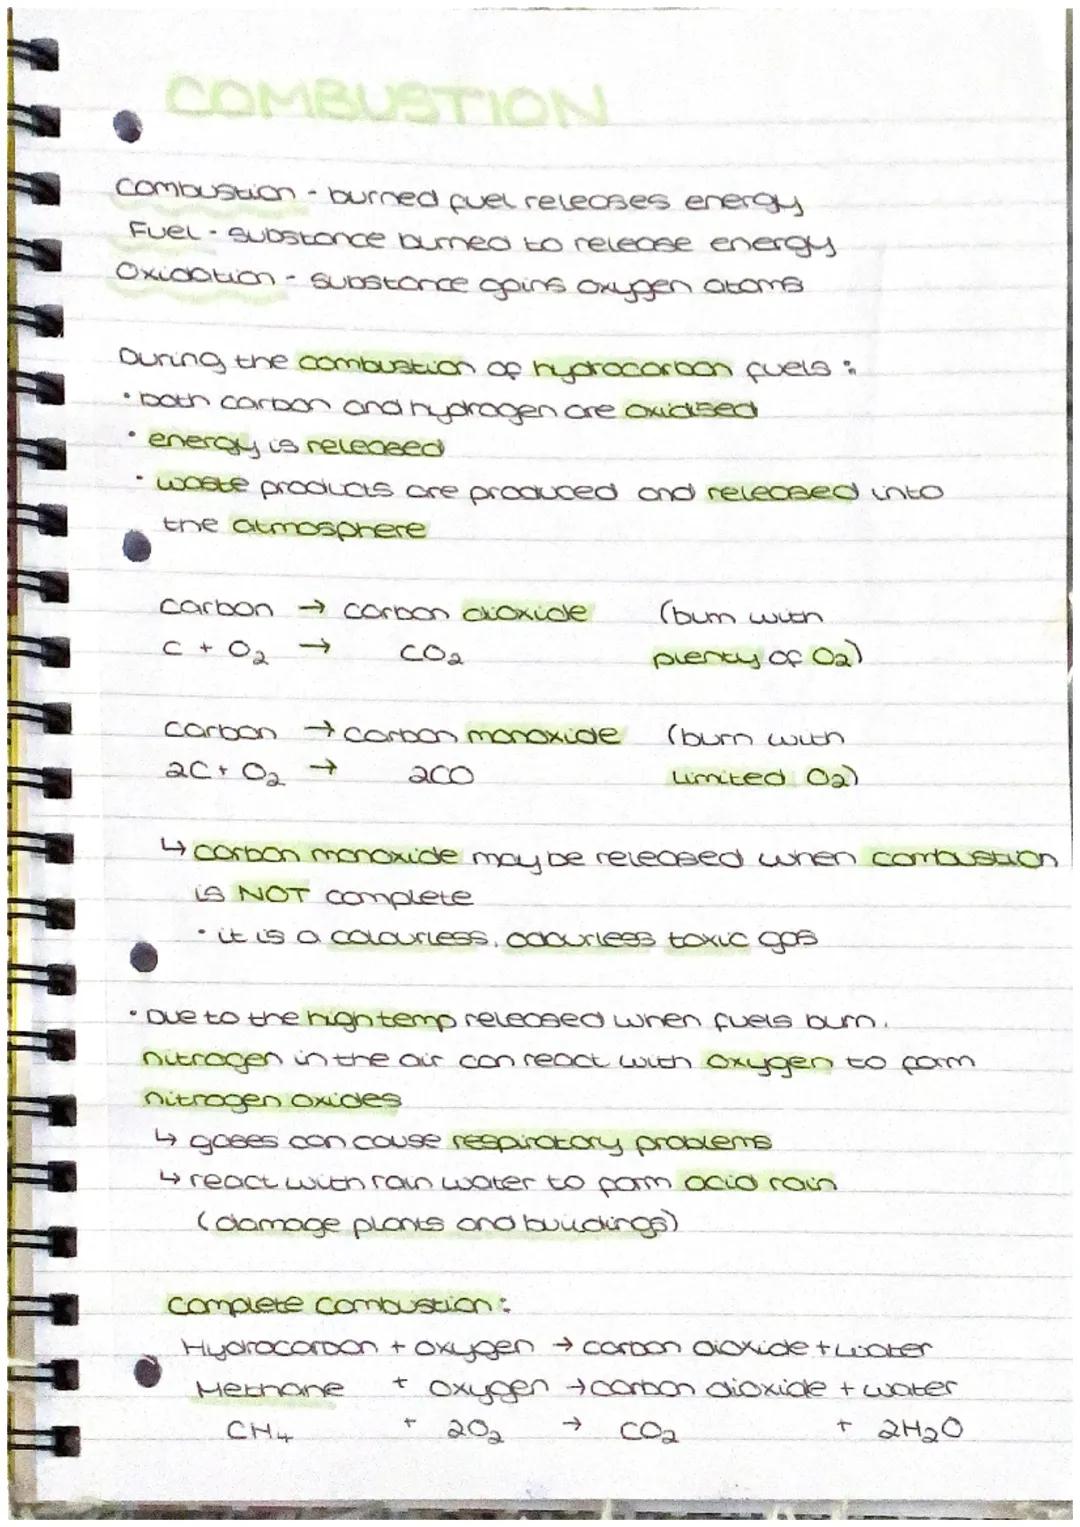 COMBUSTION
Combustion - burned fuel releases energy
Fuel - substance burned to release energy
Oxidation - substance gains oxygen atoms
During the combustion of hydrocarbon fuels :
• both carbon and hydrogen are oxidised
• energy is released
• waste products are produced and released into
the atmosphere
carbon → carbon dioxide (burn with
C + O₂ → CO₂ plenty of O₂)
carbon → carbon monoxide (burn with
2C + O₂ → 2CO limited O₂)
↳ carbon monoxide may be released when combustion
is NOT complete
• it is a colourless, odourless toxic gas
• Due to the high temp released when fuels burn,
nitrogen in the air can react with oxygen to form
nitrogen oxides
↳ gases can cause respiratory problems
↳ react with rain water to form acid rain
(damage plants and buildings)
complete combustion :
Hydrocarbon + oxygen → carbon dioxide + water
Methane + oxygen → carbon dioxide + water
CH₄ + 2O₂ → CO₂ + 2H₂O